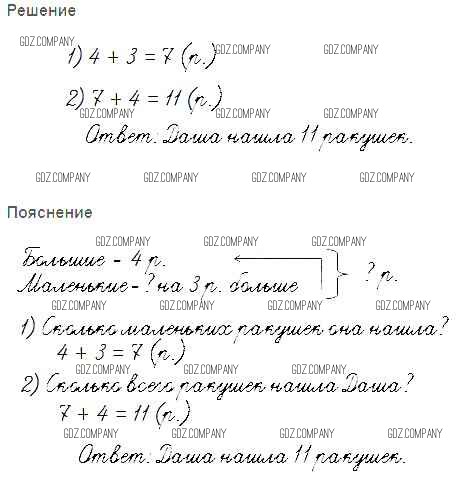 Решение
GDZ.COMPANY
1) 4 + 3 = 7 (р.)
GDZ.COMPANY GDZ.COMPANY
2) 7 + 4 = 11 (р.)
GDZ.COMPANY GDZ.COMPANY GDZ.COMPANY
Ответ: Даша нашла 11 ракушек.
GDZ.COMPANY GDZ.COMPANY GDZ.COMPANY GDZ.COMPANY
Пояснение
GDZ.COMPANY GDZ.COMPANY GDZ.COMPANY
Большие - 4 р.
Маленькие - ? на 3 р. больше ? р.
GDZ.COMPANY GDZ.COMPANY GDZ.COMPANY GDZ.COMPANY
1) Сколько маленьких ракушек она нашла?
4 + 3 = 7 (р.)
GDZ.COMPANY GDZ.COMPANY GDZ.COMPANY
2) Сколько всего ракушек нашла Даша?
7 + 4 = 11 (р.)
GDZ.COMPANY GDZ.COMPANY GDZ.COMPANY GDZ.COMPANY
Ответ: Даша нашла 11 ракушек.